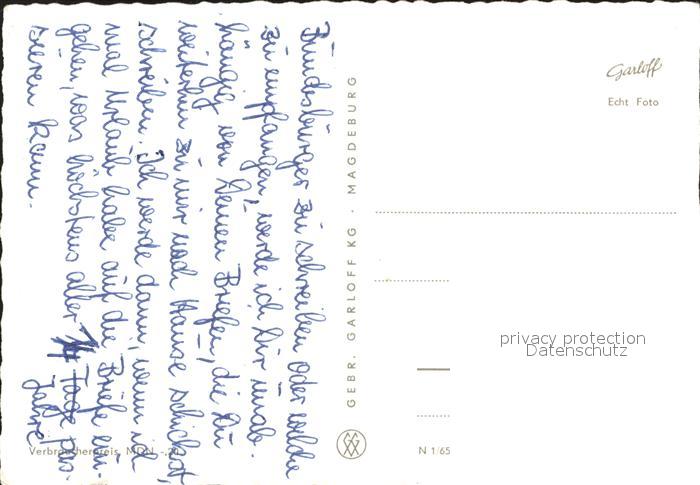 Bundesbürger zu schreiben oder welche
zu empfangen, werde ich Dir unab-
hängig von Deinen Briefen, die Du
weiterhin zu mir nach Hause schickst,
schreiben. Ich werde dann, wenn ich
mal Urlaub habe auf die Briefe ein-
gehen, was höchstens aller 14 Tage pas-
Jahre
sieren kann.
GEBR. GARLOFF KG · MAGDEBURG
Garloff
Echt Foto
privacy protection
Datenschutz
Verbraucherpreis MDN -,20
N 1/65